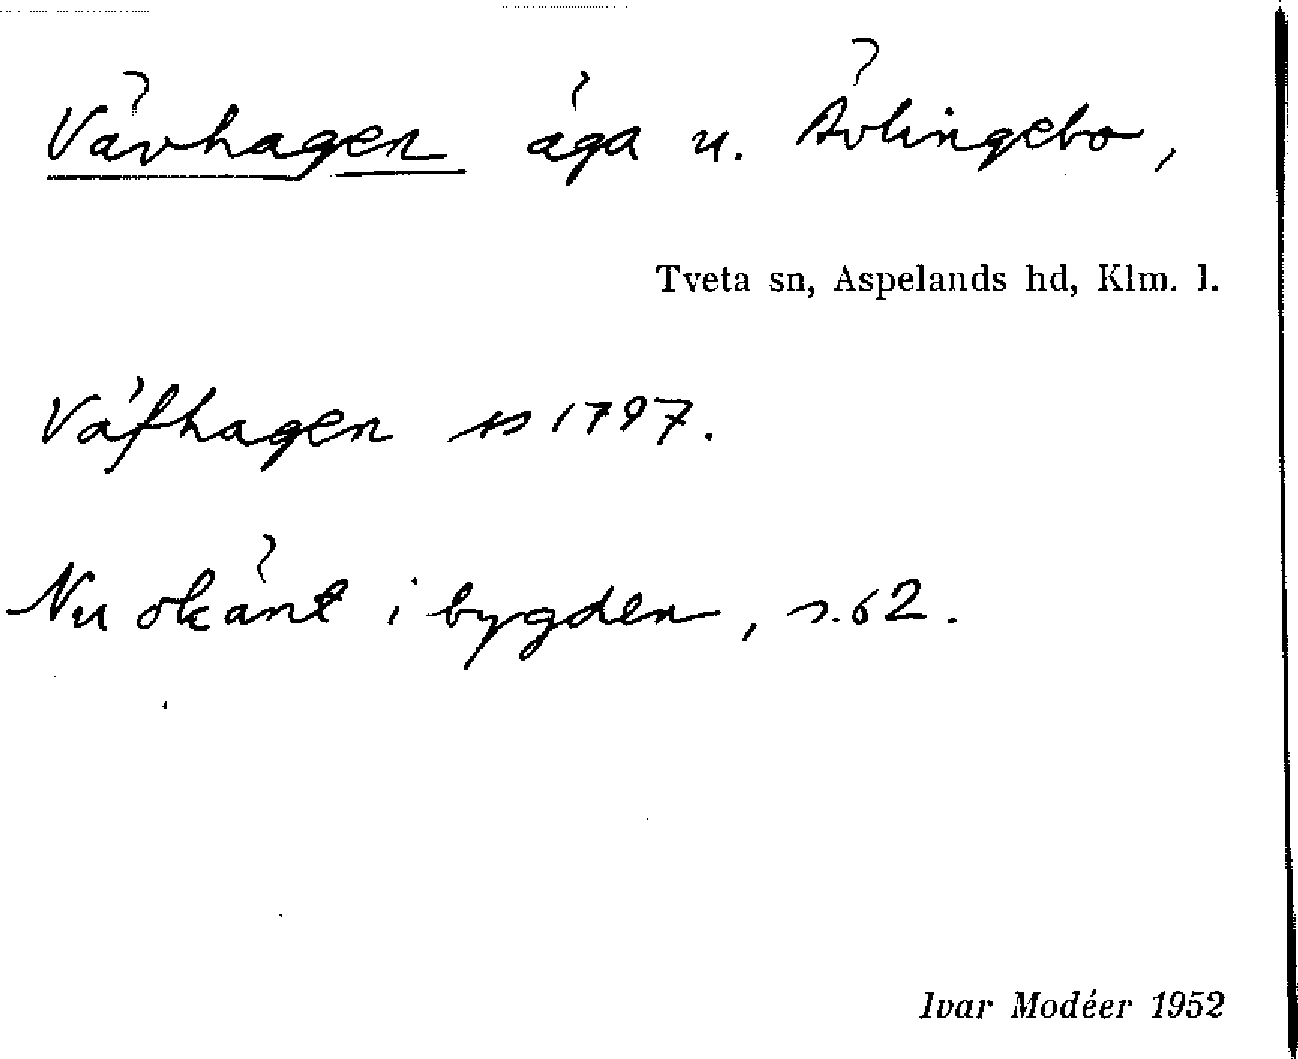 Vävhagen äga u. Ävlingebo,
Tveta sn, Aspelands hd, Klm. l.
Väfhagen 1797.
Nu okänt i bygden, s. 62.
Ivar Modéer 1952